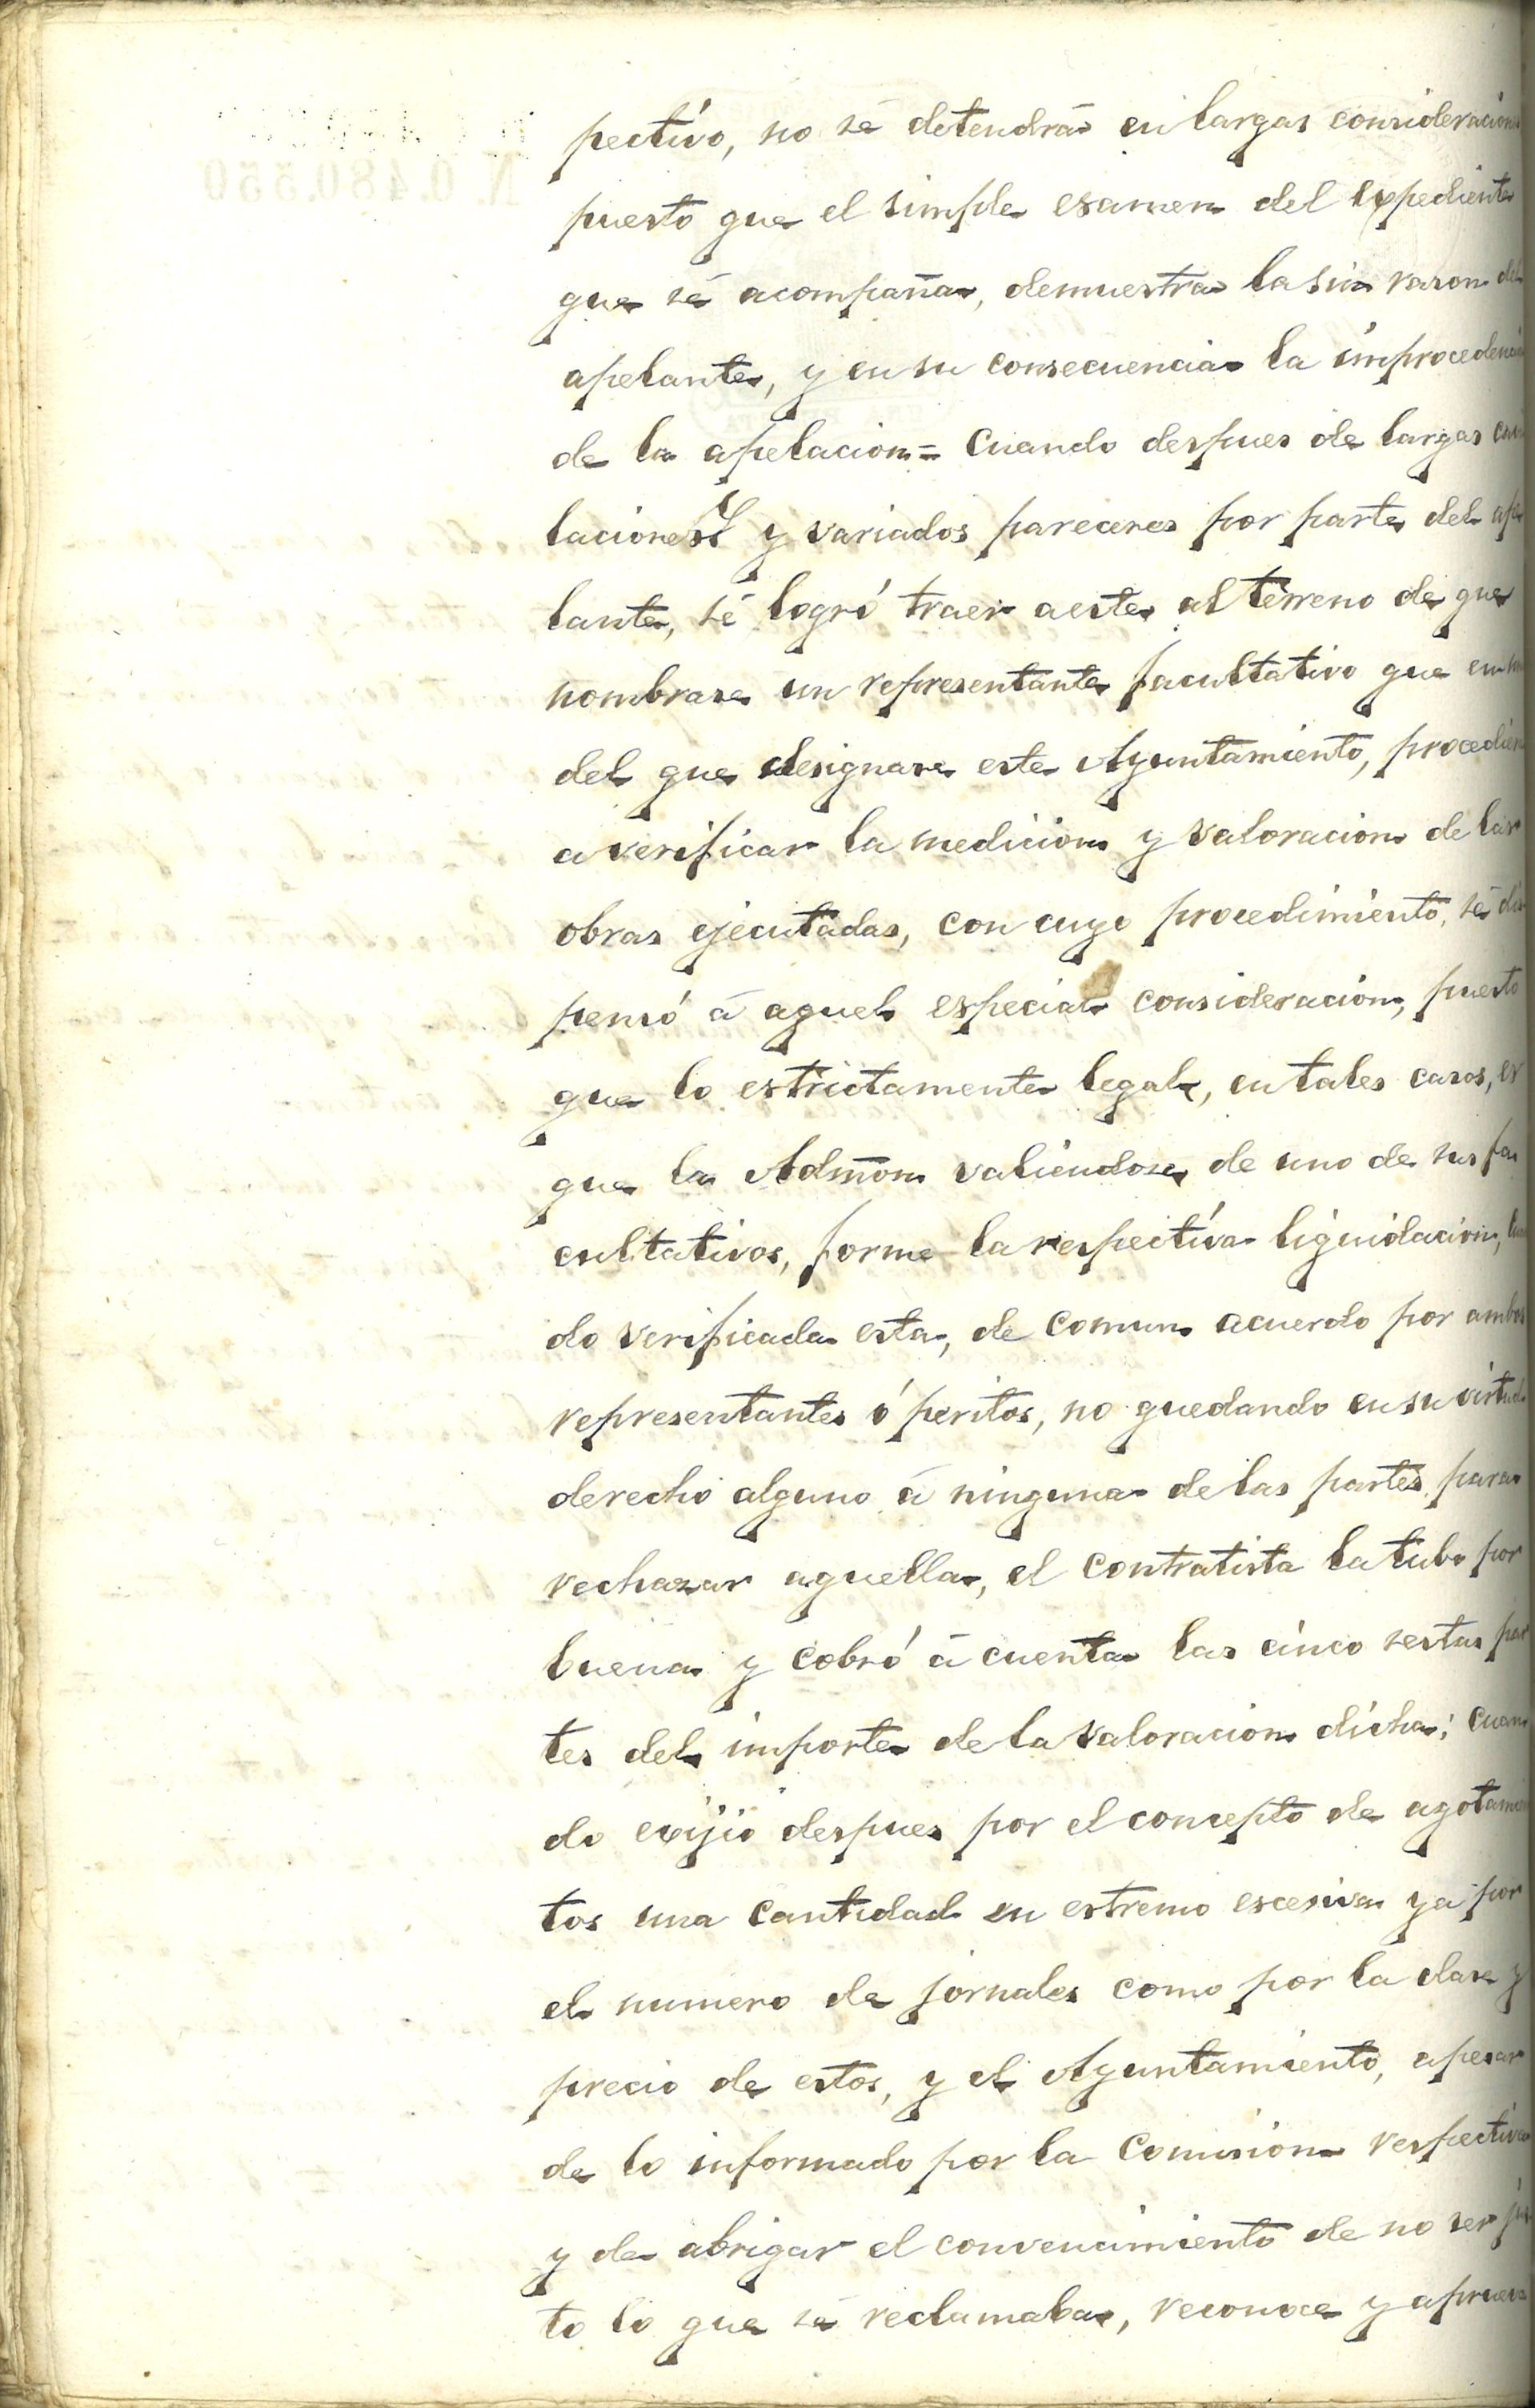 N. 0.480.550
pectivo, no sé detendrá en largas consideracion
puesto que el simple esamen del expediente
que sé acompaña, demuestra la sin rason del
apelante, y en su consecuencia la improcedenci
de la apelacion = Cuando despues de largas
laciones y variados pareceres por parte del ape
lante, sé logró traer a este al terreno de que
nombrase un representante facultativo que en
del que designare este Ayuntamiento, procedier
a verificar la medicion y valoracion de las
obras ejecutadas, con cuyo procedimiento, sé dis
pensó á aquel especial consideracion, puesto
que lo estrictamente legal, en tales casos, es
que la Admon valiendose de uno de sus fa
cultativos, forme la respectiva liquidacion,
do verificada esta, de comun acuerdo por ambos
representantes ó peritos, no quedando en su virtud
derecho alguno á ninguna de las partes para
rechazar aquella, el contratista la tubo por
buena y cobró á cuenta las cinco sestas par
tes del importe de la valoracion dicha; cuan
do exijió despues por el concepto de agotamien
tos una cantidad en estremo escesiva ya por
el numero de jornales como por la clase y
precio de estos, y el Ayuntamiento, apesar
de lo informado por la Comision respectiva
y de abrigar el convencimiento de no ser jus
to lo que sé reclamaba, reconoce y aprueva